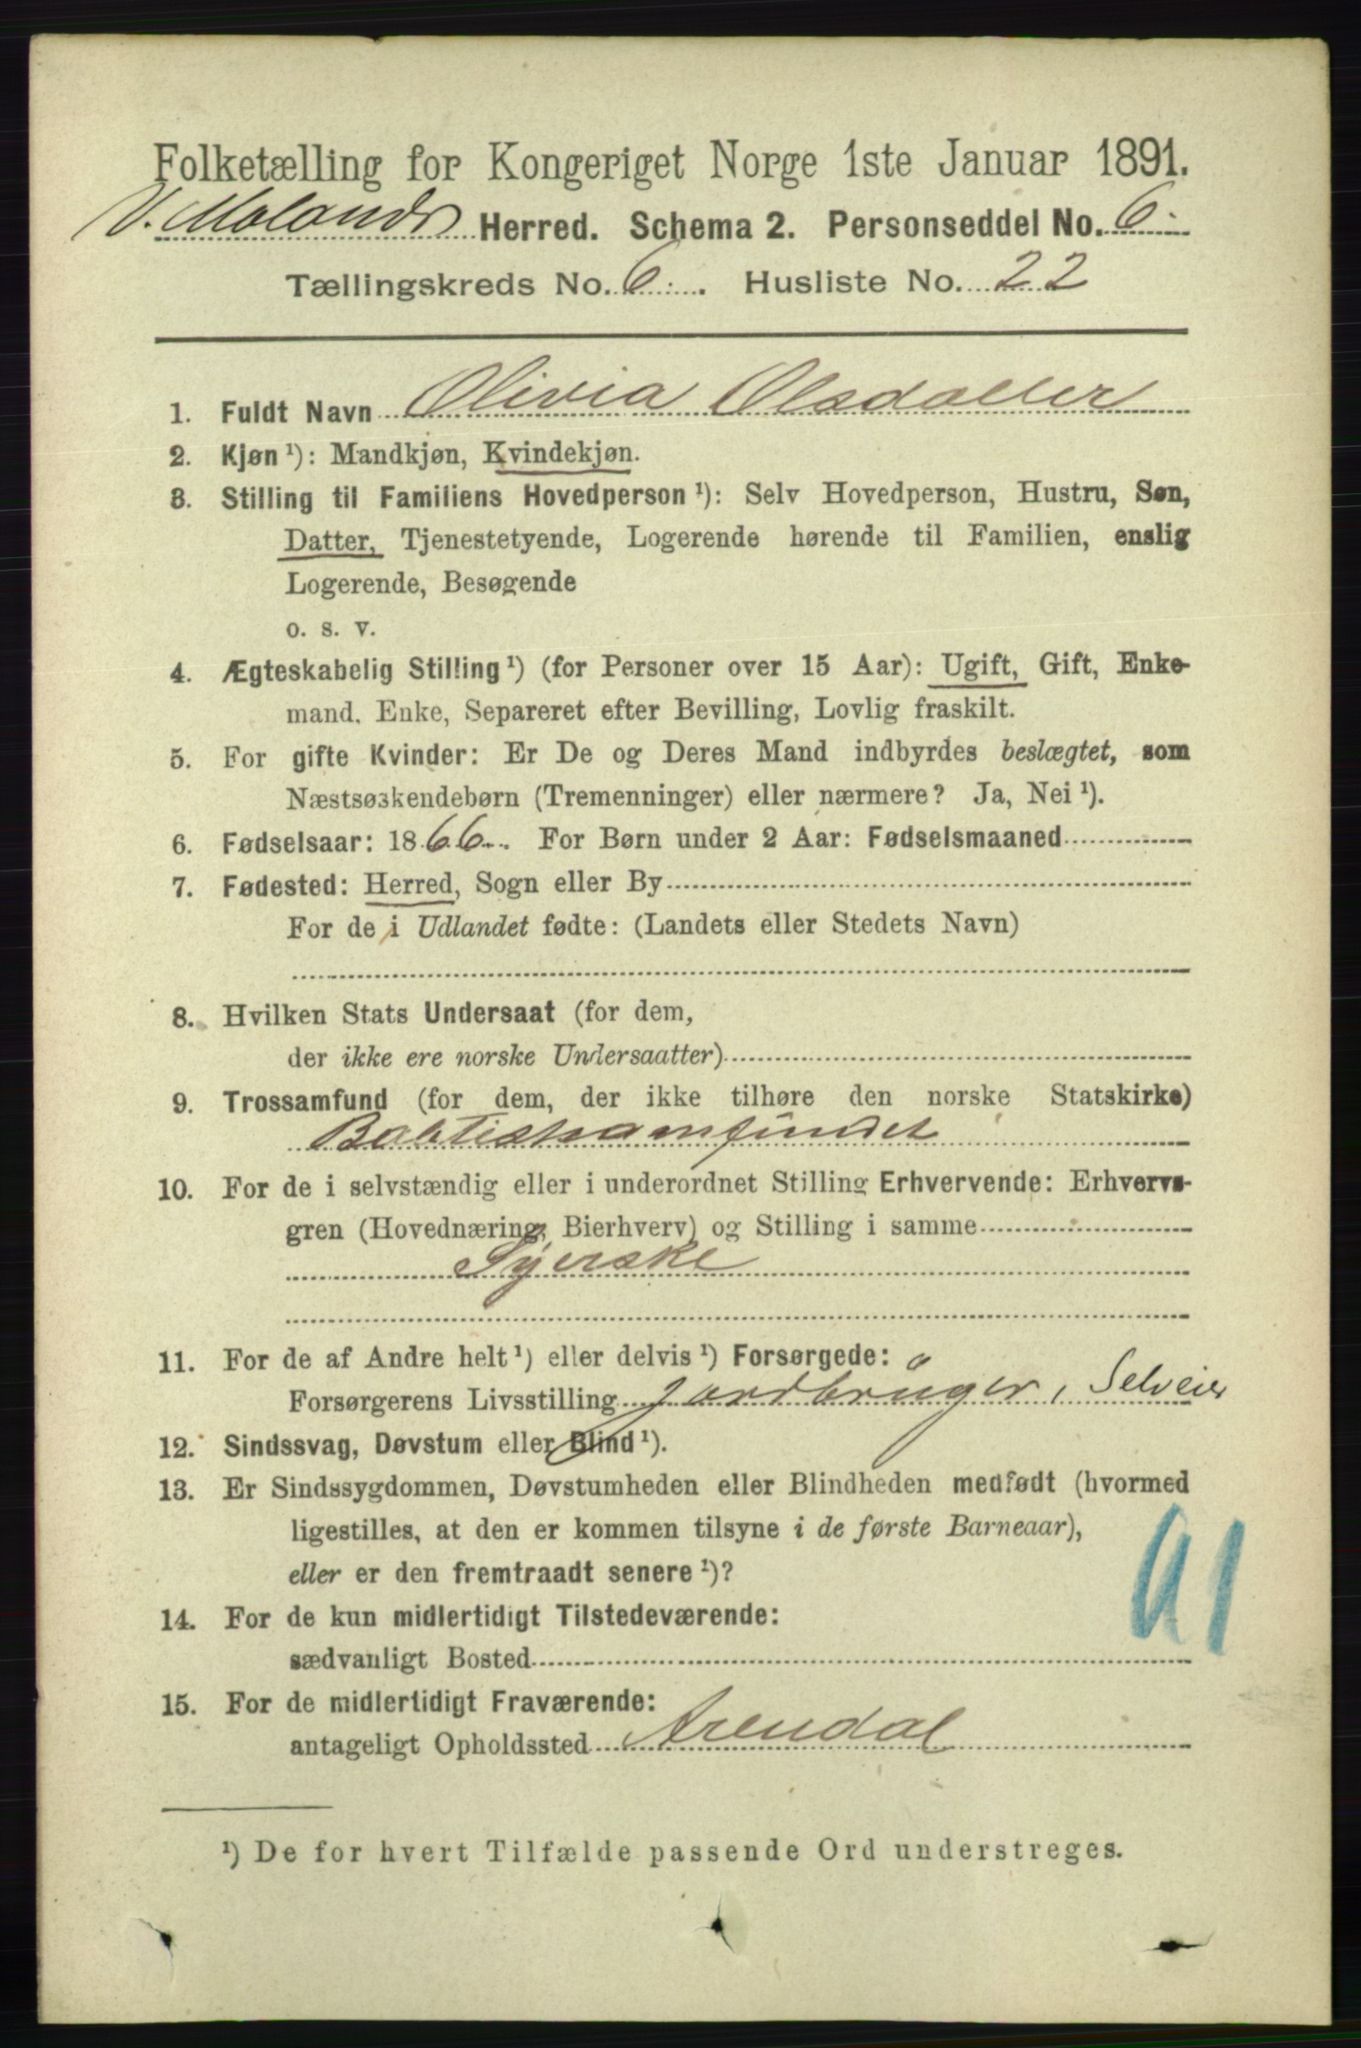 Folketælling for Kongeriget Norge 1ste Januar 1891.
V. Molands Herred. Schema 2. Personseddel No. 6.
Tællingskreds No. 6. Husliste No. 22
1. Fuldt Navn Olivia Olsdatter
2. Kjøn ¹): Mandkjøn, Kvindekjøn.
3. Stilling til Familiens Hovedperson ¹): Selv Hovedperson, Hustru, Søn,
Datter, Tjenestetyende, Logerende hørende til Familien, enslig
Logerende, Besøgende
o. s. v.
4. Ægteskabelig Stilling ¹) (for Personer over 15 Aar): Ugift, Gift, Enke-
mand, Enke, Separeret efter Bevilling, Lovlig fraskilt.
5. For gifte Kvinder: Er De og Deres Mand indbyrdes beslægtet, som
Næstsøskendebørn (Tremenninger) eller nærmere? Ja, Nei ¹).
6. Fødselsaar: 1866. For Børn under 2 Aar: Fødselsmaaned
7. Fødested: Herred, Sogn eller By
For de i Udlandet fødte: (Landets eller Stedets Navn)
8. Hvilken Stats Undersaat (for dem,
der ikke ere norske Undersaatter)
9. Trossamfund (for dem, der ikke tilhøre den norske Statskirke)
Babtistsamfundet
10. For de i selvstændig eller i underordnet Stilling Erhvervende: Erhvervs-
gren (Hovednæring, Bierhverv) og Stilling i samme
Syerske
11. For de af Andre helt ¹) eller delvis ¹) Forsørgede:
Forsørgerens Livsstilling Jordbruger, Selveier
12. Sindssvag, Døvstum eller Blind ¹).
13. Er Sindssygdommen, Døvstumheden eller Blindheden medfødt (hvormed
ligestilles, at den er kommen tilsyne i de første Barneaar),
eller er den fremtraadt senere ¹)?
14. For de kun midlertidigt Tilstedeværende:
sædvanligt Bosted
15. For de midlertidigt Fraværende:
antageligt Opholdssted Arendal
91
¹) De for hvert Tilfælde passende Ord understreges.